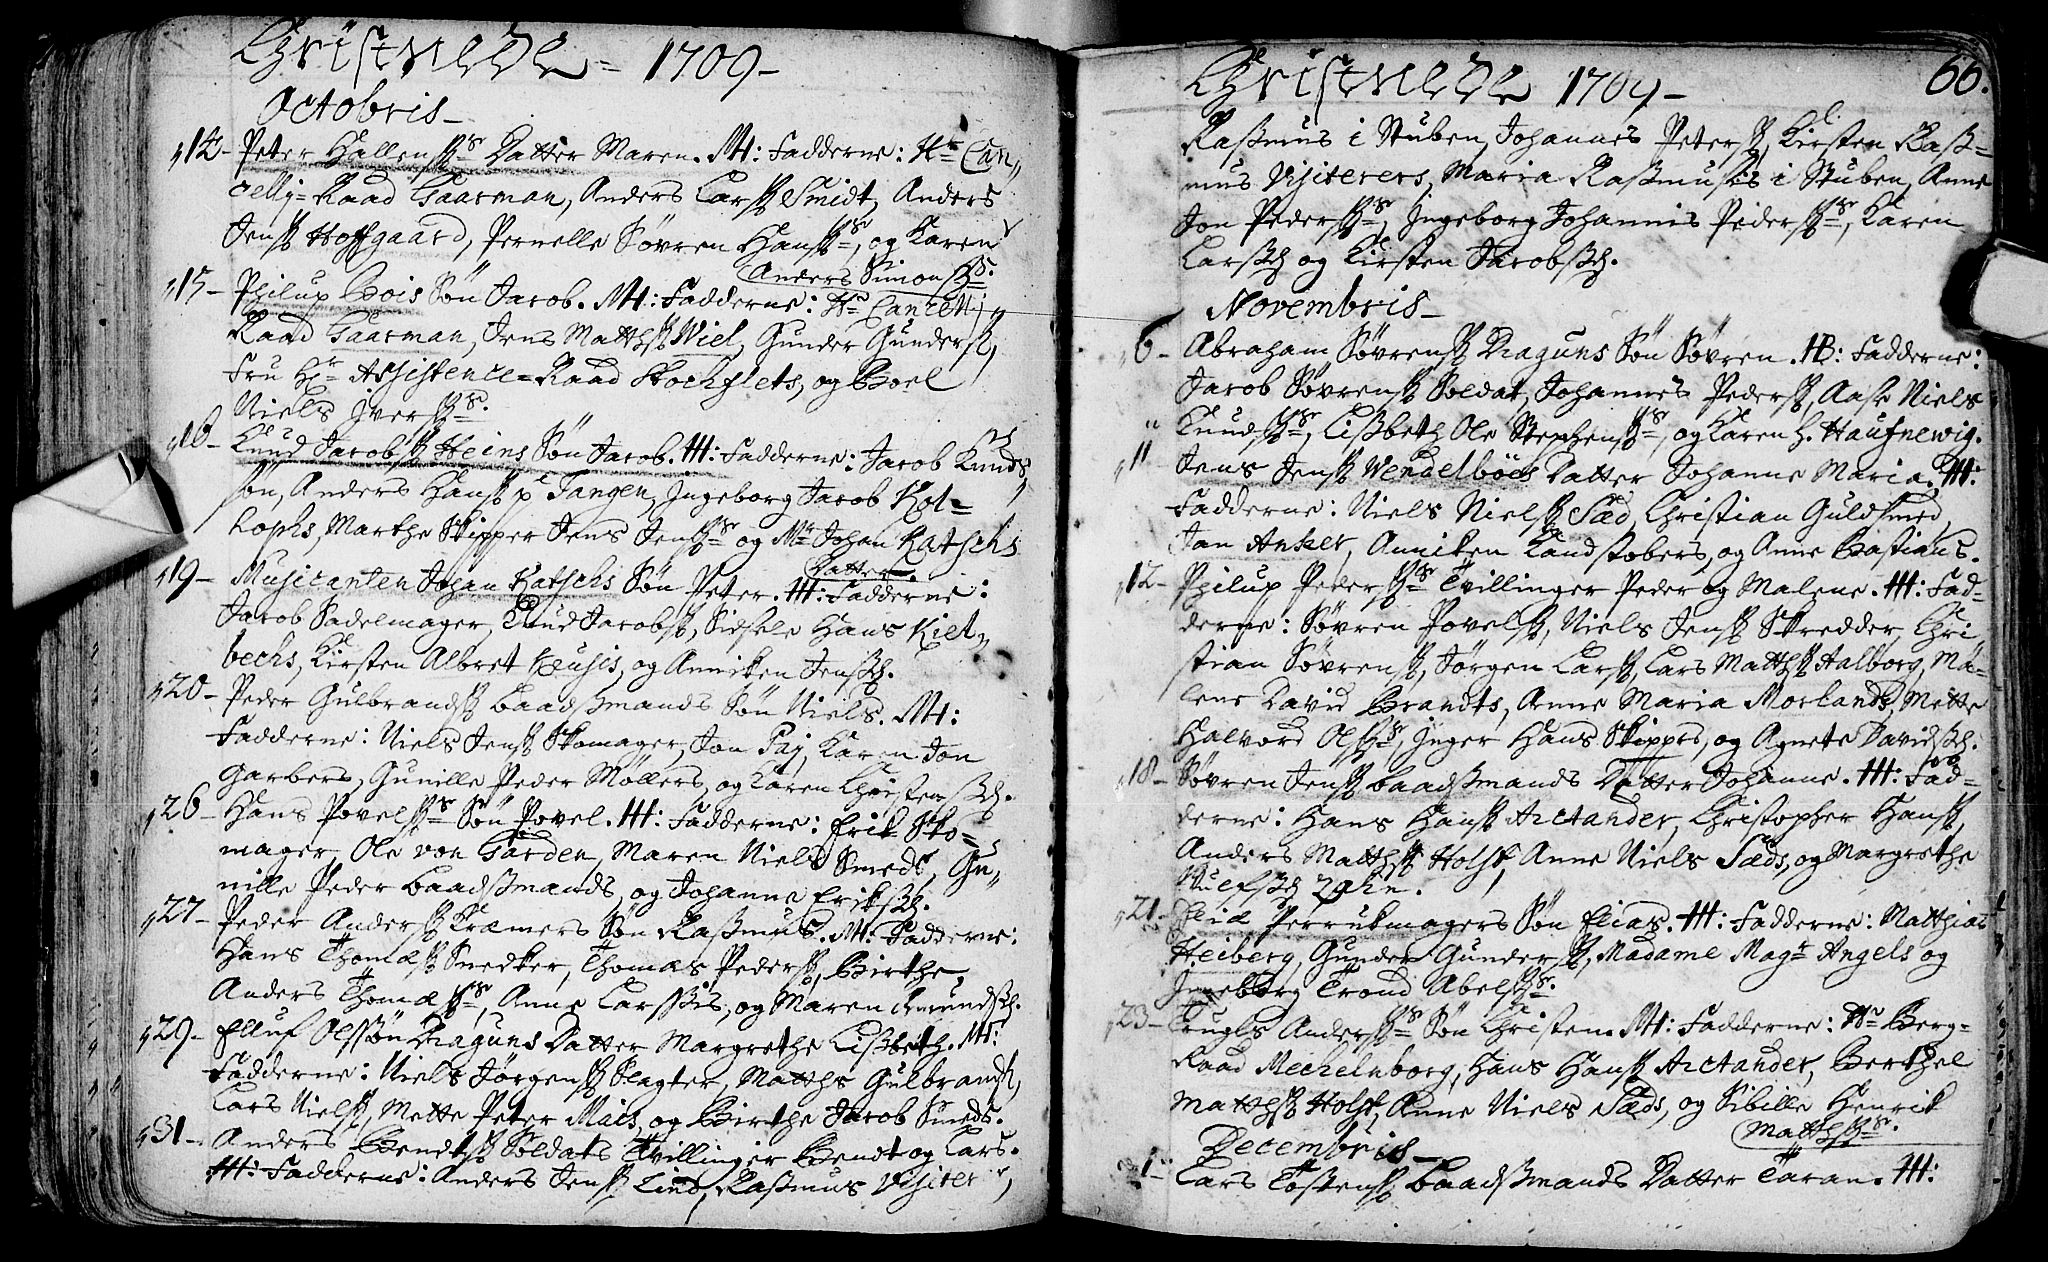 Christnede = 1709 -
Octobris -
14 - Peter Hallensk Datter Maren. M: Fadderne: Hr Can„
celly=Raad Gaarman, Anders Larsk Smidt, Anders
Jensk Hoffgaard, Pernelle Søvren Hansk, og Karen
Anders Simonsk.
15 - Philup Bois Søn Jacob. M: Fadderne: Hr Cancell„
Raad Gaarman, Jens Matthsk Wiel, Gunder Gundersk,
Fru Hr Assistence=Raad Stochflets, og Boel
Niels Iversk.
16 - Knud Jacobsk Heins Søn Jacob. M: Fadderne: Jacob Knuds
søn, Anders Hansk p Tangen, Ingeborg Jacob Kol=
hophs, Marthe Skipper Jens Jensk og Mr Johan Katschs
Datter.
19 - Musicanten Johan Katschs Søn Peter. M: Fadderne:
Jacob Sadelmager, Knud Jacobsk, Sidsele Hans Kiel„
bechs, Kirsten Albret , og Anniken Jensk.
20 - Peder Gulbrandsk Baadsmands Søn Niels. M:
Fadderne: Niels Jensk Skomager, Jon Paj, Karen Jon
Garbers, Gunille Peder Møllers, og Karen Christensk.
26 - Hans Povelsk Søn Povel. M: Fadderne: Erik Sko=
mager, Ole von Garden, Maren Niels Smeds, Gu„
nille Peder Baadsmands, og Johanne Eriksk.
27 - Peder Andersk Kræmers Søn Rasmus. M: Fadderne:
Hans Thomæsk Snedker, Thomas Pedersk, Birthe
Anders Thomæsk, Anne Larssis, og Maren Amundsk.
29 - Elluf Olssøn Draguns Datter Margrethe Lisbeth. M:
Fadderne: Niels Jørgensk Slagter, Matths Gulbrandsk,
Lars Nielsk, Mette Peter Mais, og Birthe Jacob Smeds.
31 - Anders Bendtsk Soldats Tvillinger Bendt og Lars.
M: Fadderne: Anders Jensk Lind, Rasmus Visiterer,
Christnede 1709 -
66.
Rasmus i Stuben, Johannes Petersk, Kirsten Ras=
mus Visiterers, Maria Rasmusis i Stuben, Anne
Jon Pedersk, Ingeborg Johannis Pedersk, Karen
Larsk og Kirsten Jacobsk.
Novembris -
6 - Abraham Søvrensk Draguns Søn Søvren. HB: Fadderne:
Jacob Søvrensk Soldat, Johannes Pedersk, Aase Niels
Knudsk, Lisbeth Ole Stephensk, og Karen H. Haufnewig.
11 Jens Jensk Wendelboes Datter Johanne Maria. M:
Fadderne: Niels Nielsk Sæd, Christian Guldsmed,
Jan Anker, Anniken Kandstøbers, og Anne Bastians.
12 - Philup Pedersk Tvillinger Peder og Malene. M: Fad=
derne: Søvren Povelsk, Niels Jensk Skredder, Chri
stian Søvrensk, Jørgen Larsk, Lars Matthsk Aalborg, Ma=
lene David Brandts, Anne Maria Morlands, Mette
Halvord Olsk, Inger Hans Skippers, og Agnete Davidsk.
18 - Søvren Jensk Baadsmands Datter Johanne. M: Fad=
derne: Hans Hansk Arctander, Christopher Hansk,
Anders Matthsk Holst, Anne Niels Sæds, og Margrethe
Wulfsk
21 - Eliæ Perrukmagers Søn Elias. M: Fadderne: Matthias
Heiberg, Gunder Gundersk, Madame Magr Angels og
Ingeborg Trond Abelsk.
23 - Trugls Andersk Søn Christen. M: Fadderne: Hr Berg=
Raad Mechelnborg, Hans Hansk Arctander, Berthel
Matthsk Holst, Anne Niels Sæds, og Sibille Henrik
Matthsk.
Decembris -
1 - Lars Tostensk Baadsmands Datter Taran. M: